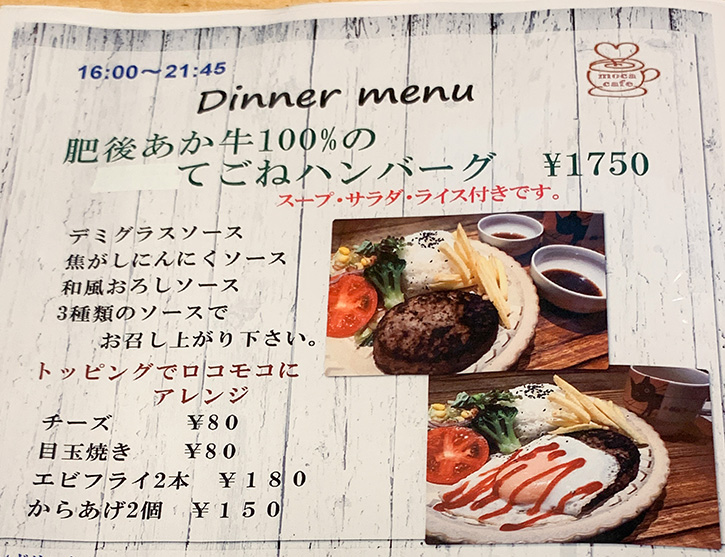 16:00～21:45
moca
cafe
Dinner menu
肥後あか牛100%の
てごねハンバーグ ¥1750
スープ・サラダ・ライス付きです。
デミグラスソース
焦がしにんにくソース
和風おろしソース
3種類のソースで
お召し上がり下さい。
トッピングでロコモコに
アレンジ
チーズ ¥80
目玉焼き ¥80
エビフライ2本 ¥180
からあげ2個 ¥150